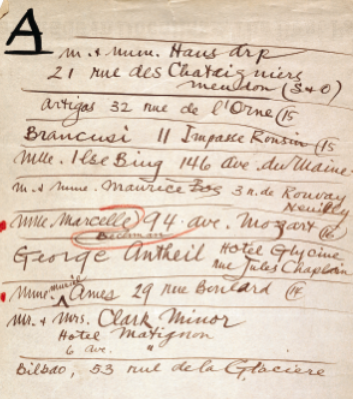 A
M. & Mme. Hans Arp
21 rue des Chataigniers
Meudon (S & O)
Artigas 32 rue de l'Orne (15
Brancusi 11 Impasse Ronsin (15
Mlle. Ilse Bing 146 ave. du Maine
M. & Mme. Maurice 3 r. de Rouvray
Neuilly
Mlle Marcelle 94 ave. Mozart (16
George Antheil Hotel Glycine
rue Jules Chaplain
Mme. Muriel Ames 29 rue Boulard (14
Mr. & Mrs. Clark Minor
Hotel Matignon
6 ave. "
Bilbao, 53 rue de la Glaciere